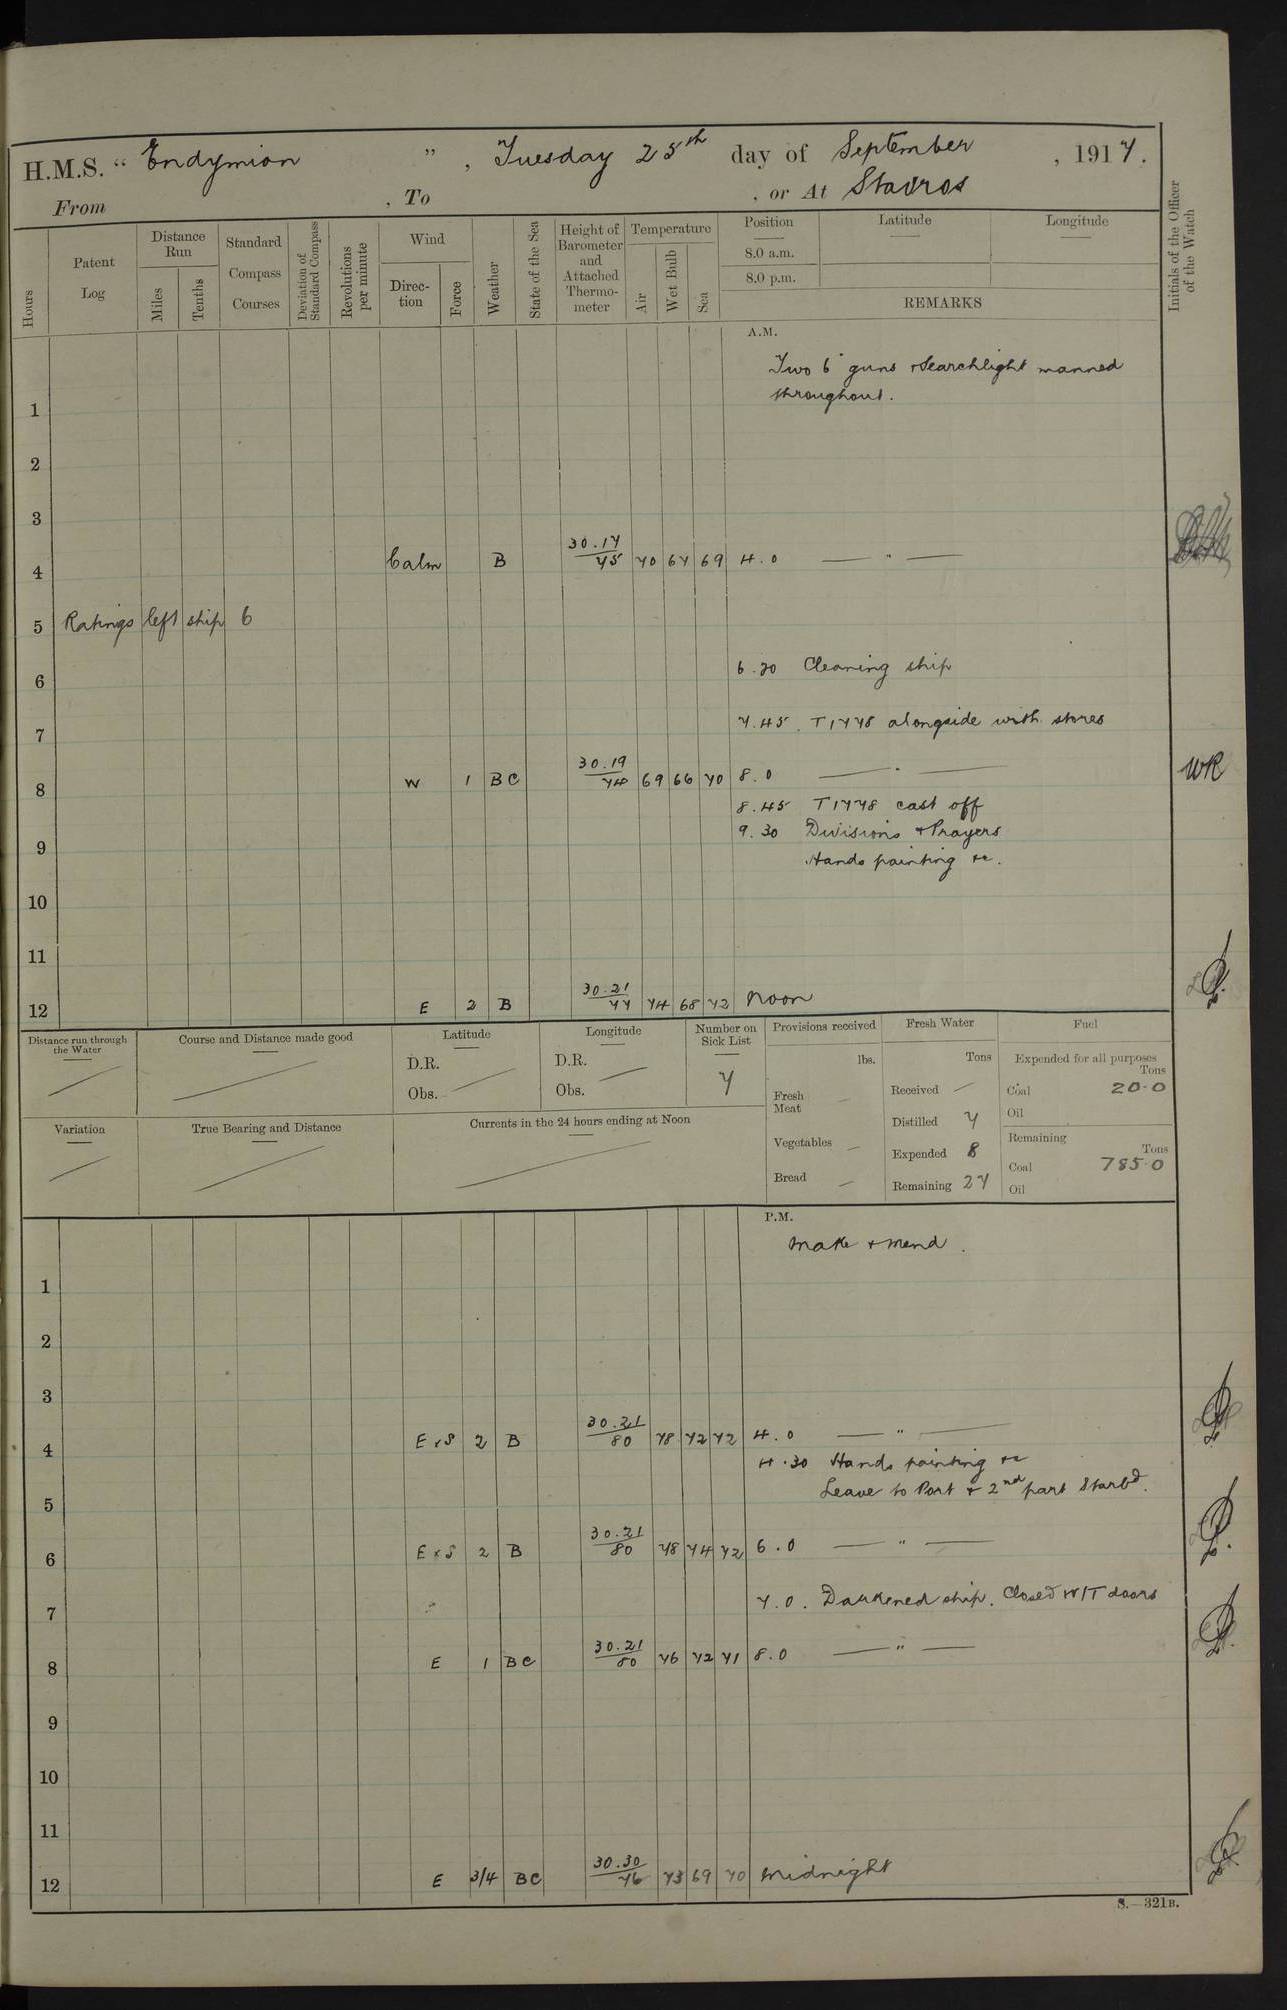 H.M.S. “ Endymion ” , Tuesday 25th day of September , 1917.
From , To , or At Stavros
Hours
Patent Log
Distance Run
Miles
Tenths
Standard Compass Courses
Deviation of Standard Compass
Revolutions per minute
Wind
Direction
Force
Weather
State of the Sea
Height of Barometer and Attached Thermometer
Temperature
Air
Wet Bulb
Sea
Position
8.0 a.m.
8.0 p.m.
Latitude
Longitude
REMARKS
Initials of the Officer of the Watch
A.M.
Two 6" guns + Searchlight manned
throughout.
1
2
3
4 Calm B 30.17/75 70 67 69 4.0 — " —
5 Ratings left ship 6
6 6.20 Cleaning ship
7 7.45. T1778 alongside with stores
8 W 1 BC 30.19/74 69 66 70 8.0 — " — WR
8.45 T1778 cast off
9 9.30 Divisions + Prayers
Hands painting &c.
10
11
12 E 2 B 30.21/77 74 68 72 Noon
Distance run through the Water
Course and Distance made good
Latitude
D.R.
Obs.
Longitude
D.R.
Obs.
Number on Sick List
7
Provisions received
lbs.
Fresh Meat —
Vegetables —
Bread —
Fresh Water
Tons
Received —
Distilled 7
Expended 8
Remaining 27
Fuel
Expended for all purposes
Tons
Coal 20.0
Oil
Remaining
Tons
Coal 785.0
Oil
Variation
True Bearing and Distance
Currents in the 24 hours ending at Noon
P.M.
Make + Mend.
1
2
3
4 E x S 2 B 30.21/80 78 72 72 4.0 — " —
4.30 Hands painting &c
Leave to Port + 2nd part Starbd.
5
6 E x S 2 B 30.21/80 78 74 72 6.0 — " —
7 7.0. Darkened ship. Closed W/T doors
8 E 1 BC 30.21/80 76 72 71 8.0 — " —
9
10
11
12 E 3/4 BC 30.30/76 73 69 70 Midnight
S.—321B.